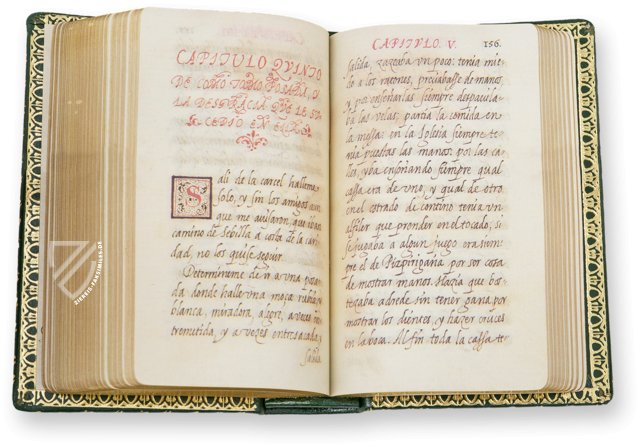 CAPITULO QVINTO
DE COMO TOMO POSADA, Y
LA DESGRACIA QVE LE SV-
CEDIO EN ELLA
Sali de la carcel halleme
solo, y sin los amigos aun
que me auisaron, que iban
camino de Sebilla a costa de la cari
dad, no los quise seguir.
Determineme de ir a una posa
da donde halle una moça rubia, y
blanca, miradora, alegre, a veces en
tremetida, y a vezes entresacada, y
salida.
CAPITVLO. V. 156.
salida, zazeaba un poco: tenia mie
do a los ratones, preciabasse de manos
y por enseñarlas siempre despauila
ba las velas, partia la comida en
la messa: en la Iglesia siempre te
nia puestas las manos: por las ca
lles, yba enseñando siempre qual
cassa era de uno, y qual de otro
en el estrado de contino tenia un
alfiler que prender en el tocado; si
se jugaba a algun juego era siem
pre el de Pizpirigaña, por ser cosa
de mostrar manos. Hazia que bo-
tezaba adrede sin tener gana por
mostrar los dientes, y hazer cruces
en la boca. Al fin toda la cassa te-
ZIEREIS-FAKSIMILES.DE